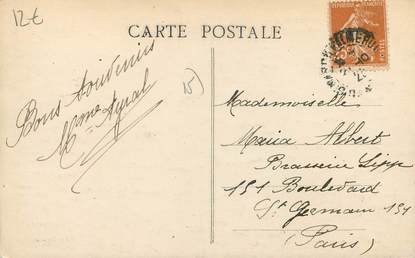 12€
CARTE POSTALE
Bons souvenirs
Mme Ayral
15
Mademoiselle
Maria Albert
Brasserie Lipp
151 Boulevard
St Germain 151
(Paris)